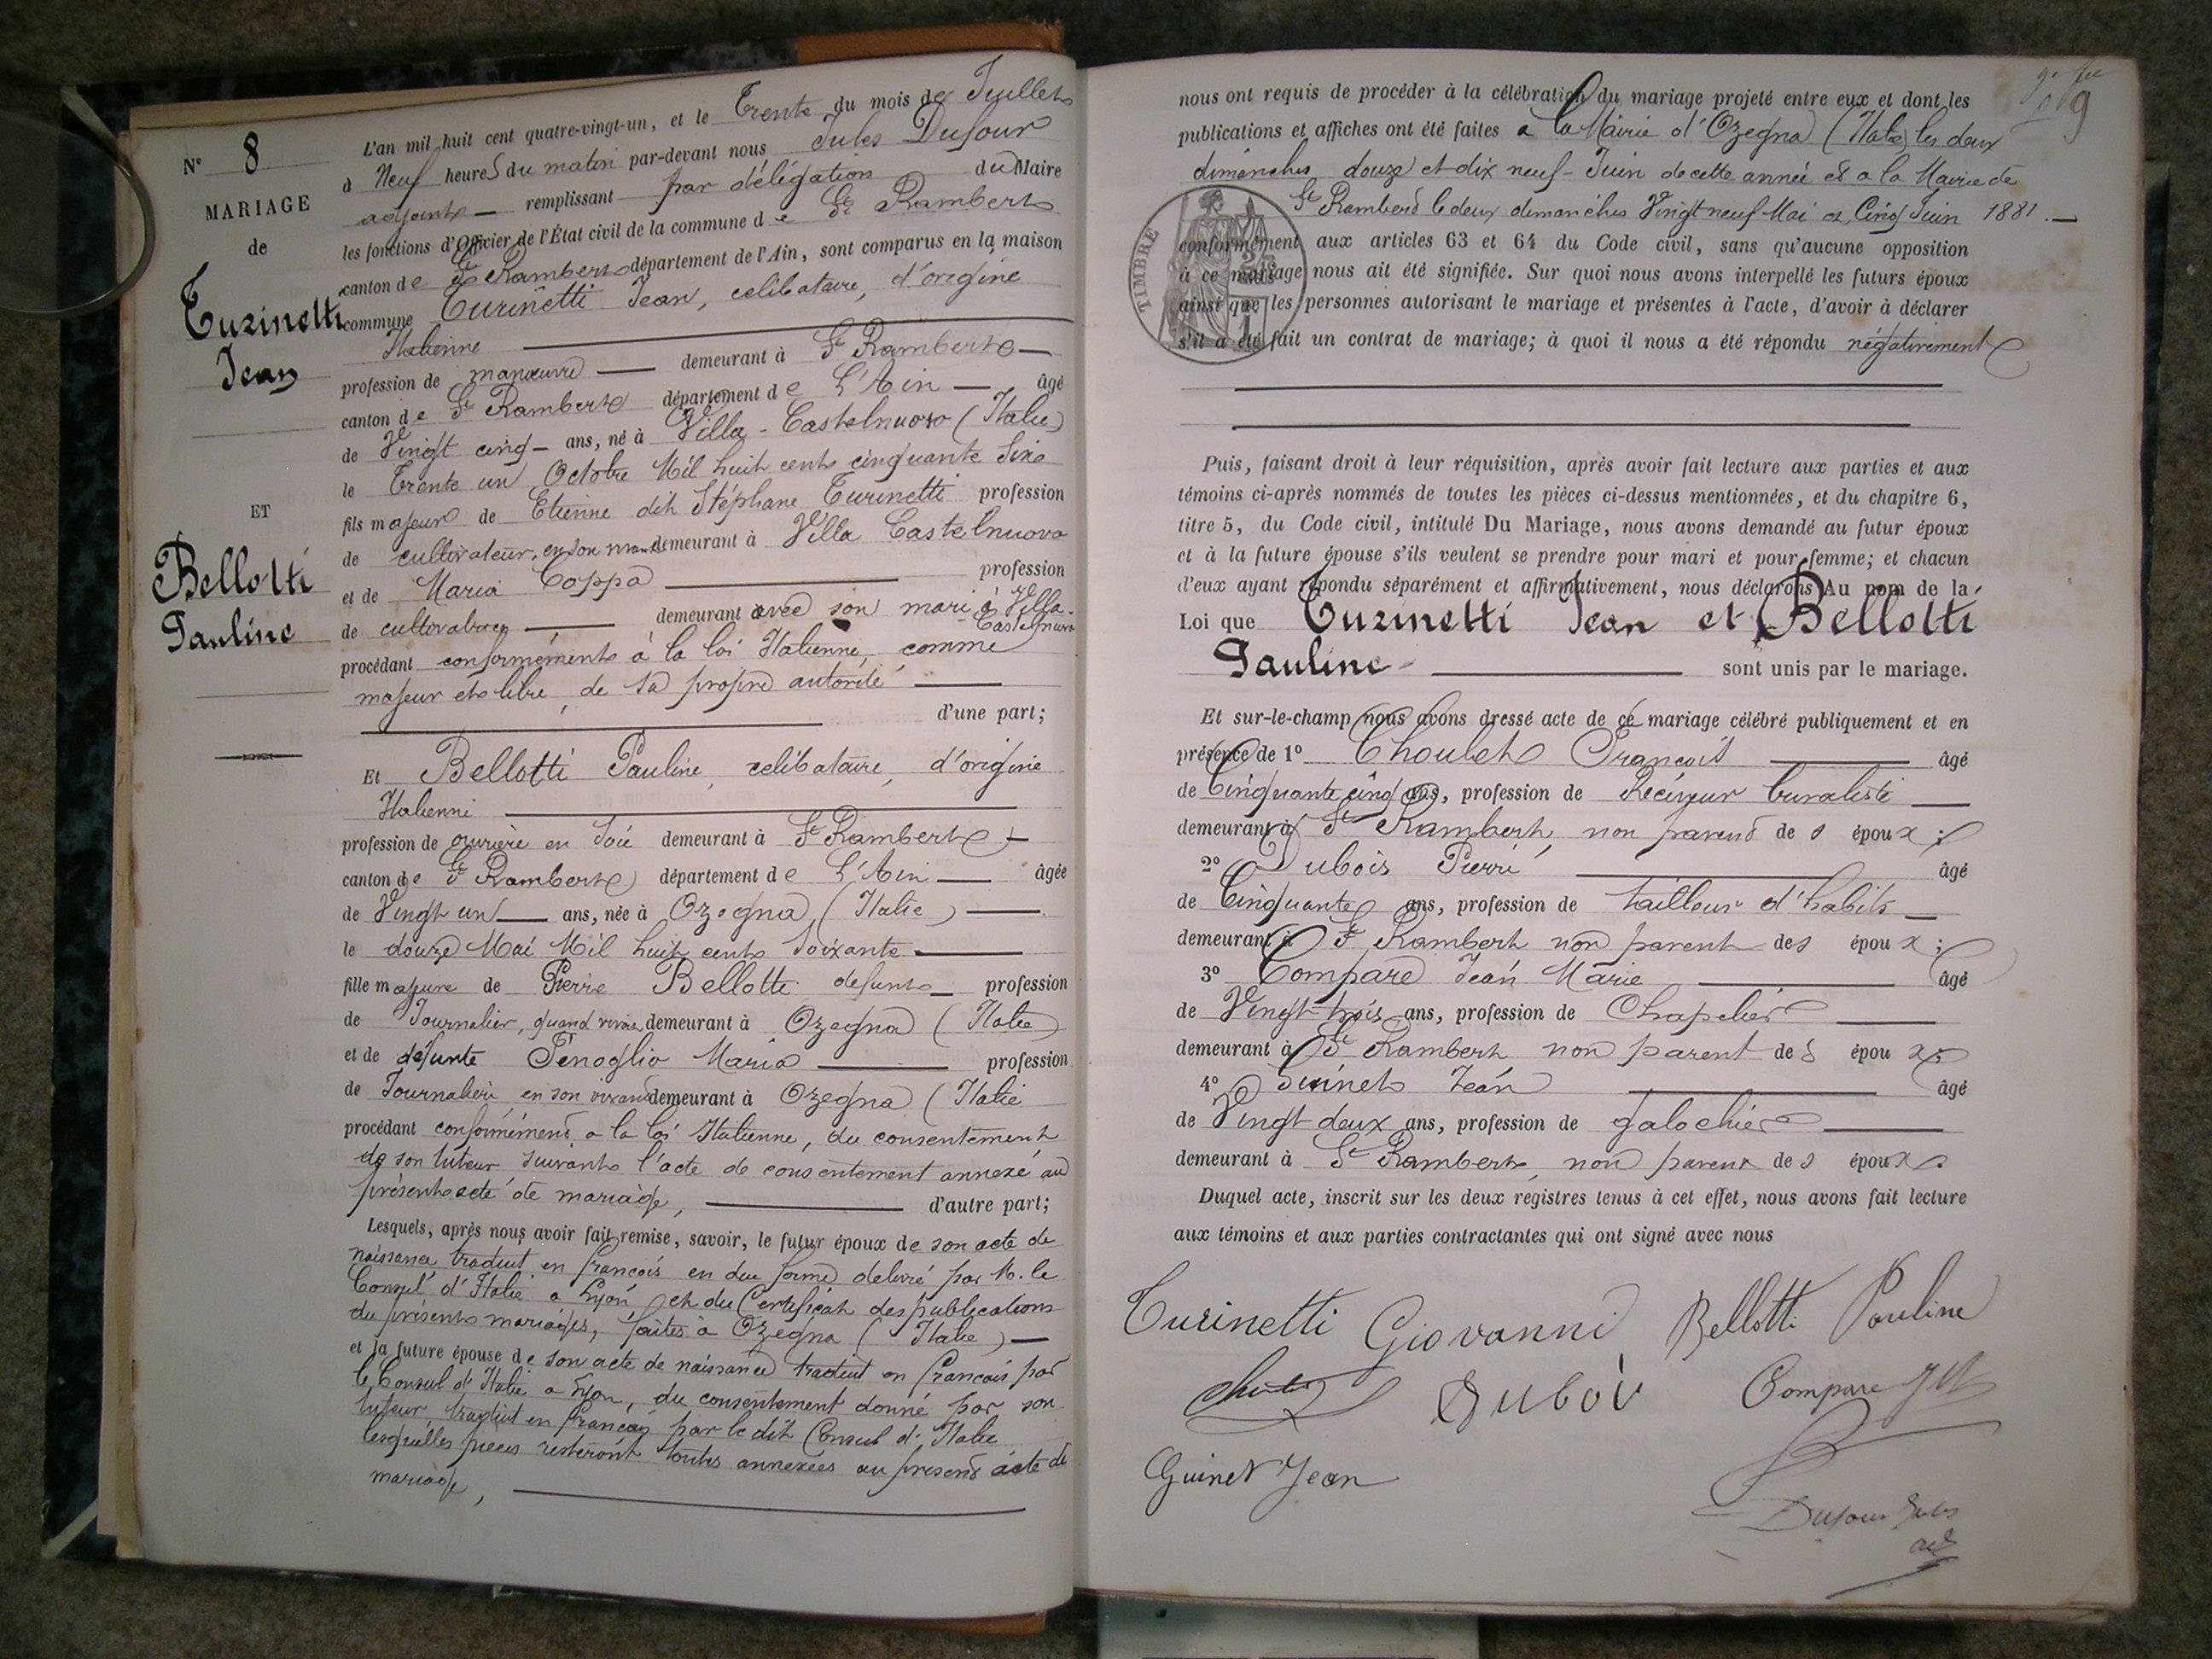 N° 8
MARIAGE
de
Turinetti
Jean
ET
Bellotti
Pauline
L'an mil huit cent quatre-vingt-un, et le Trente du mois de Juillet
à Neuf heures du matin par-devant nous Jules Dufour
adjoint remplissant par délégation du Maire
les fonctions d'Officier de l'État civil de la commune de St Rambert
canton de St Rambert département de l'Ain, sont comparus en la maison
commune Turinetti Jean, celibataire, d'origine
Italienne
profession de manœuvre demeurant à St Rambert
canton de St Rambert département de L'Ain âgé
de Vingt cinq ans, né à Villa-Castelnuovo (Italie)
le Trente un Octobre Mil huit cent cinquante Six
fils majeur de Etienne dit Stéphane Turinetti profession
de cultivateur, en son vivant demeurant à Villa Castelnuovo
et de Maria Coppa profession
de cultivatrice demeurant avec son mari à Villa-
Castelnuovo
procédant conformément à la loi Italienne, comme
majeur et libre, de sa propre autorité
d'une part;
Et Bellotti Pauline, celibataire, d'origine
Italienne
profession de ouvrière en soie demeurant à St Rambert
canton de St Rambert département de L'Ain âgée
de Vingt un ans, née à Ozegna (Italie)
le douze Mai Mil huit cent soixante
fille majeure de Pierre Bellotti defunt profession
de Journalier, quand vivait demeurant à Ozegna (Italie)
et de défunte Fenoglio Maria profession
de Journalière en son vivant demeurant à Ozegna (Italie
procédant conformément a la loi Italienne, du consentement
de son tuteur suivant l'acte de consentement annexé au
présent acte de mariage, d'autre part;
Lesquels, après nous avoir fait remise, savoir, le futur époux de son acte de
naissance traduit en français en due forme délivré par M. le
Consul d'Italie a Lyon, et du Certificat des publications
du présent mariages, faites à Ozegna (Italie)
et la future épouse de son acte de naissance traduit en français par
le Consul d'Italie a Lyon, du consentement donné par son
tuteur traduit en français par le dit Consul d'Italie
lesquelles pièces resteront toutes annexées au présent acte de
mariage,
nous ont requis de procéder à la célébration du mariage projeté entre eux et dont les
publications et affiches ont été faites a la Mairie d'Ozegna (Italie) les deux
dimanches douze et dix neuf Juin de cette année et a la Mairie de
St Rambert le deux dimanches Vingt neuf Mai et Cinq Juin 1881.
TIMBRE
conformément aux articles 63 et 64 du Code civil, sans qu'aucune opposition
à ce mariage nous ait été signifiée. Sur quoi nous avons interpellé les futurs époux
ainsi que les personnes autorisant le mariage et présentes à l'acte, d'avoir à déclarer
s'il a été fait un contrat de mariage; à quoi il nous a été répondu négativement
Puis, faisant droit à leur réquisition, après avoir fait lecture aux parties et aux
témoins ci-après nommés de toutes les pièces ci-dessus mentionnées, et du chapitre 6,
titre 5, du Code civil, intitulé Du Mariage, nous avons demandé au futur époux
et à la future épouse s'ils veulent se prendre pour mari et pour femme; et chacun
d'eux ayant répondu séparément et affirmativement, nous déclarons Au nom de la
Loi que Turinetti Jean et Bellotti
Pauline sont unis par le mariage.
Et sur-le-champ nous avons dressé acte de ce mariage célébré publiquement et en
présence de 1° Choulet François âgé
de Cinquante cinq ans, profession de Receveur buraliste
demeurant à St Rambert, non parent des époux;
2° Dubois Pierre âgé
de Cinquante ans, profession de tailleur d'habits
demeurant à St Rambert non parent des époux;
3° Compare Jean Marie âgé
de Vingt-trois ans, profession de Chapelier
demeurant à St Rambert non parent des époux;
4° Guinet Jean âgé
de Vingt deux ans, profession de galochier
demeurant à St Rambert, non parent des époux.
Duquel acte, inscrit sur les deux registres tenus à cet effet, nous avons fait lecture
aux témoins et aux parties contractantes qui ont signé avec nous
Turinetti Giovanni Bellotti Pauline
Duboi Compare JM
Guinet Jean
Dufour Jules
adj